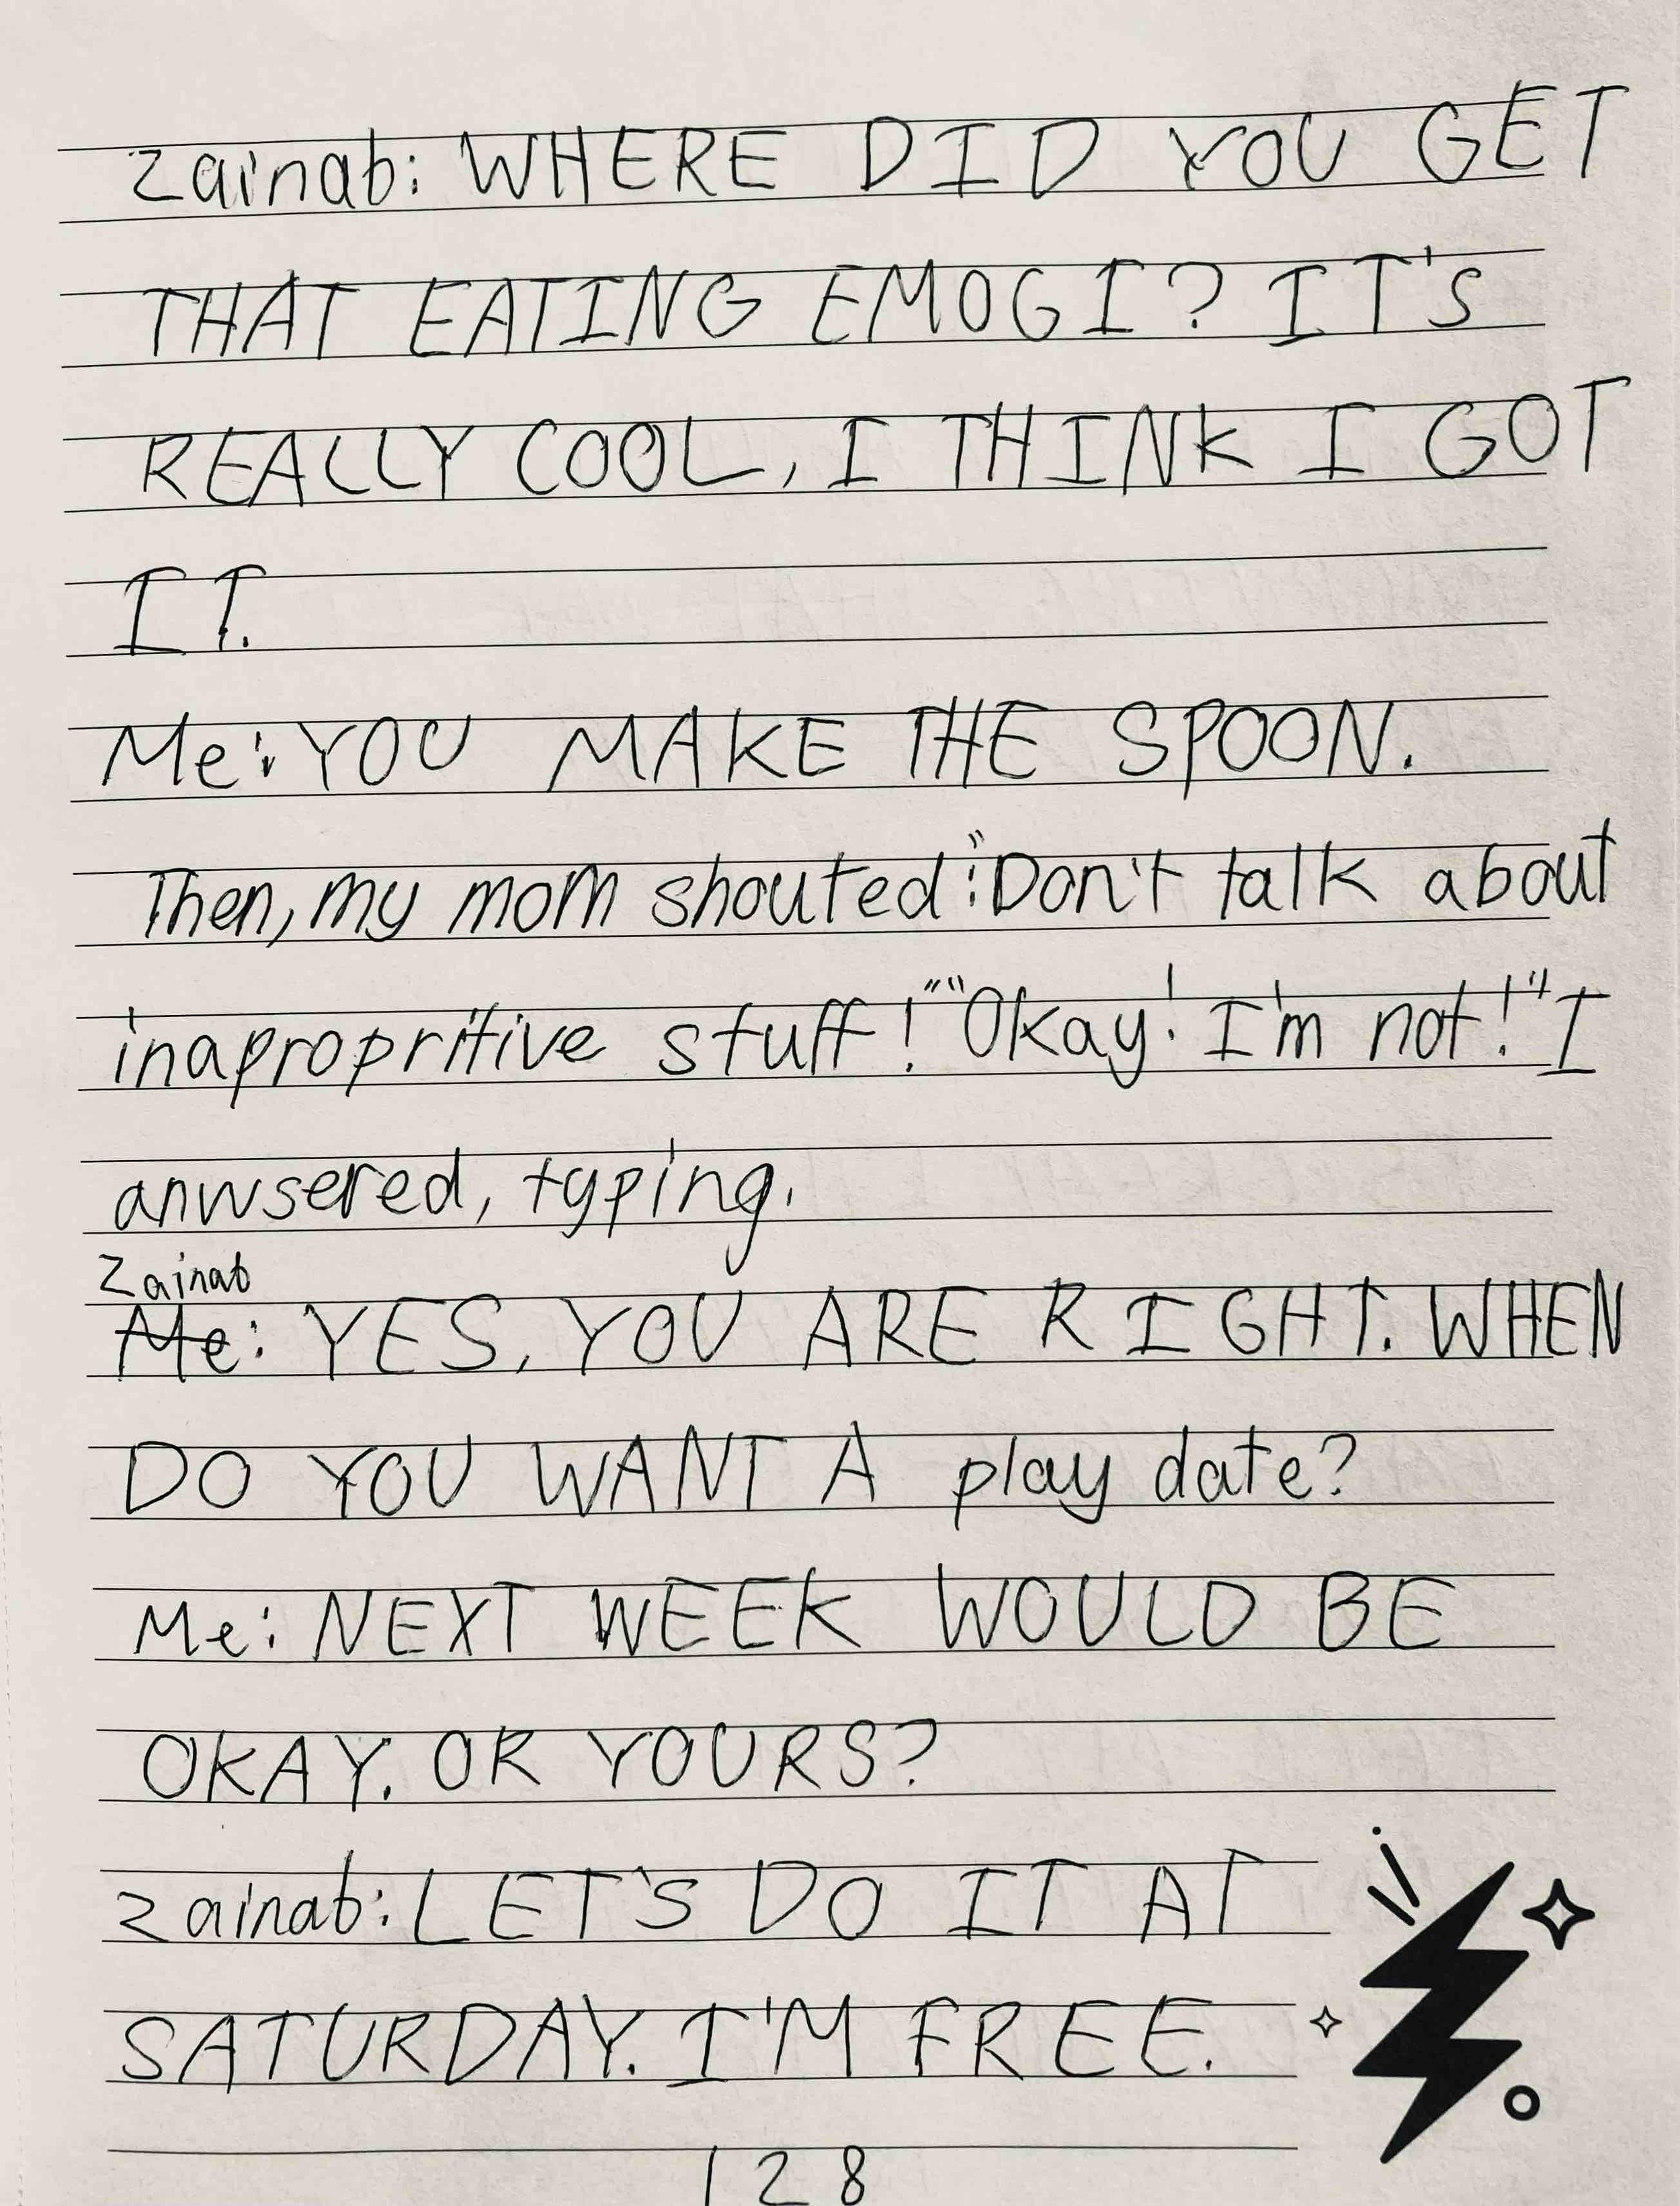 Zainab: WHERE DID YOU GET
THAT EATING EMOGI? IT'S
REALLY COOL, I THINK I GOT
IT.
Me: YOU MAKE THE SPOON.
Then, my mom shouted: "Don't talk about
inapropritive stuff!" "Okay! I'm not!" I
anwsered, typing.
Zainab
Me: YES, YOU ARE RIGHT. WHEN
DO YOU WANT A play date?
Me: NEXT WEEK WOULD BE
OKAY. OR YOURS?
Zainab: LET'S DO IT AT
SATURDAY. I'M FREE.
128